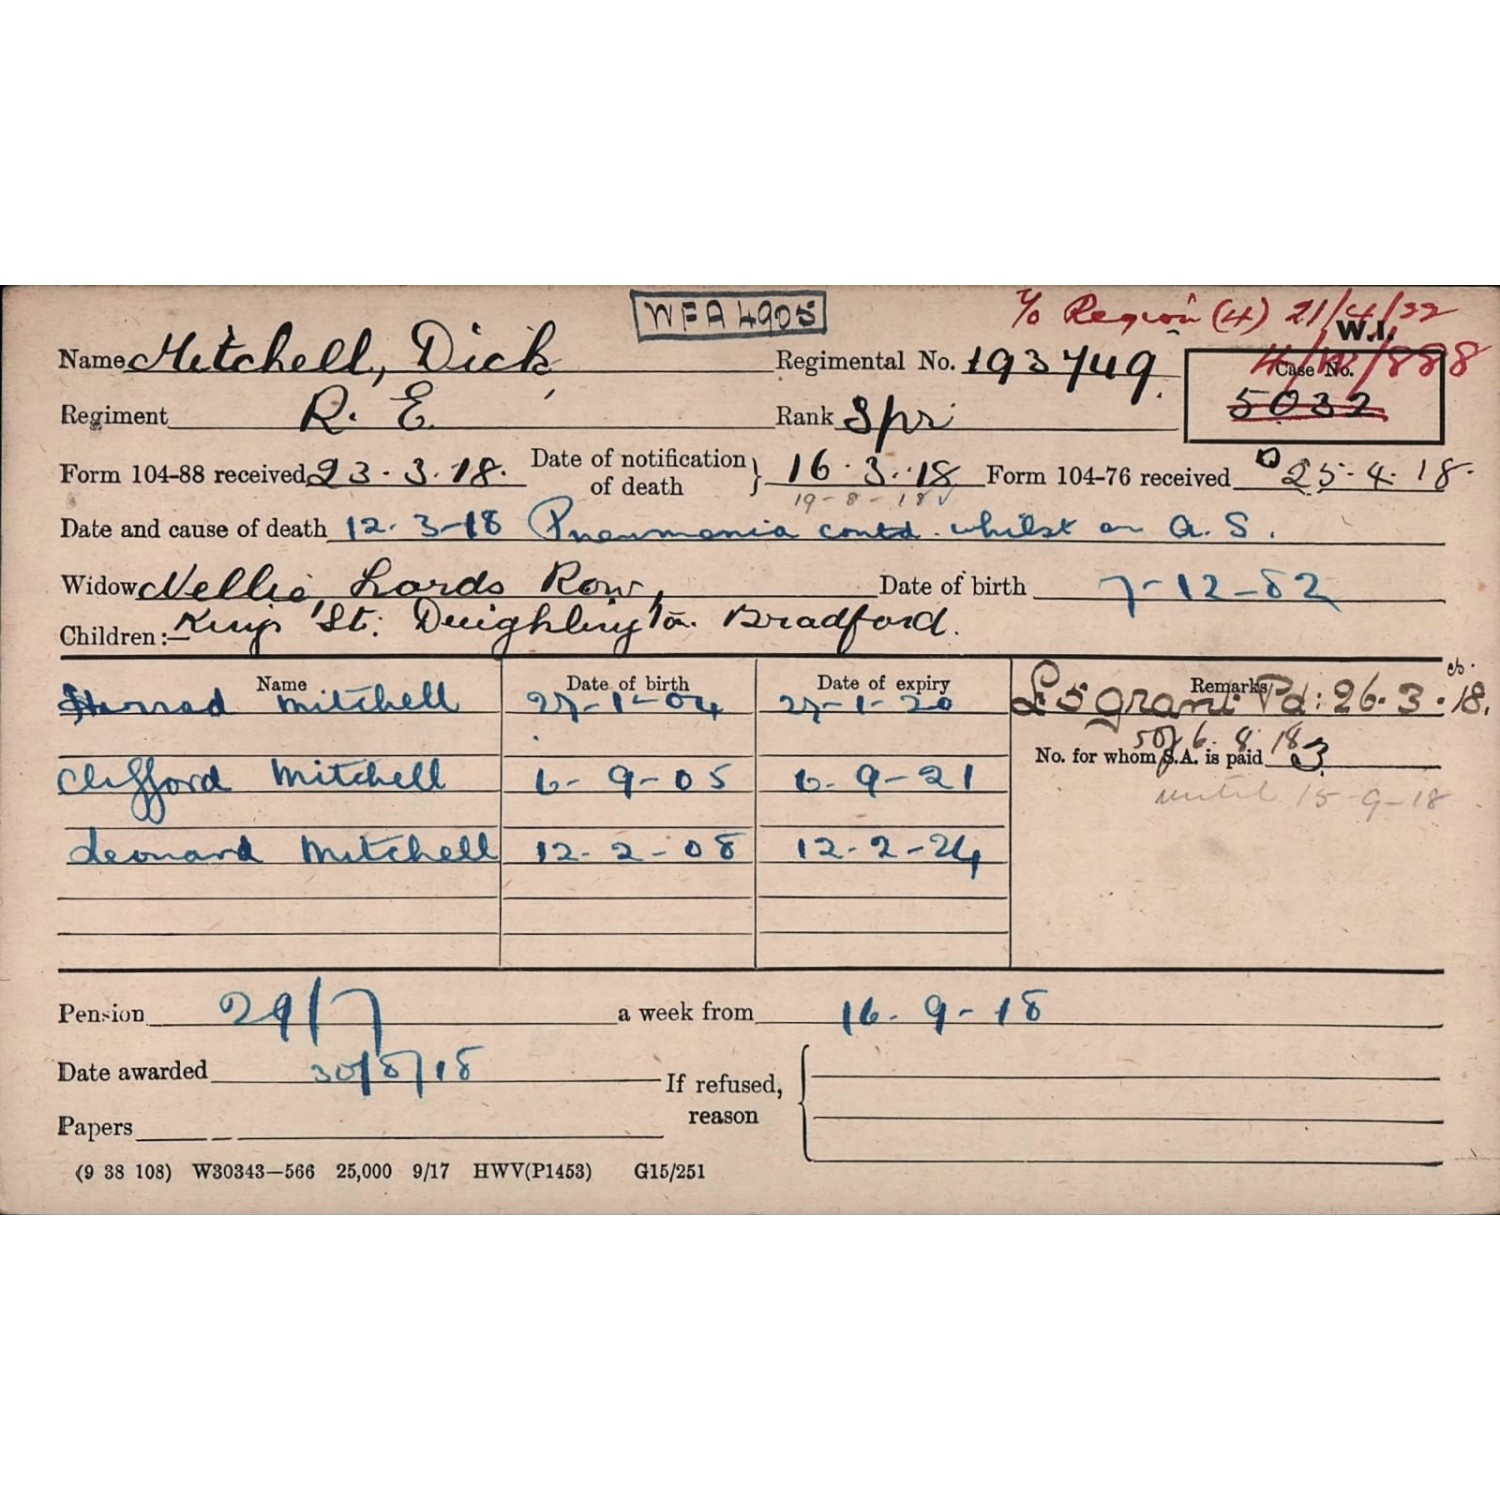 WFA 4905
T/o Region (4) 21/4/22
W.I.
Name Mitchell, Dick
Regimental No. 193749.
4/M/888
Case No.
5032
Regiment R. E.
Rank Spr
Form 104-88 received 23.3.18.
Date of notification of death } 16.3.18
19-8-18
Form 104-76 received 25.4.18.
Date and cause of death 12.3-18 Pneumonia contd. whilst on A. S.
Widow Nellie, Lords Row,
Date of birth 7-12-82
Children:— King St. Drighlington. Bradford.
Name
Date of birth
Date of expiry
Remarks
Mitchell 27-1-04 27-1-20
£5 grant Pd: 26.3.18.
50/ 6.8.18
No. for whom S.A. is paid 3
Clifford Mitchell 6-9-05 6-9-21
until 15-9-18
Leonard Mitchell 12-2-08 12-2-24
Pension 29/7 a week from 16-9-18
Date awarded 30/8/18
If refused, reason
Papers
(9 38 108) W30343—566 25,000 9/17 HWV(P1453) G15/251